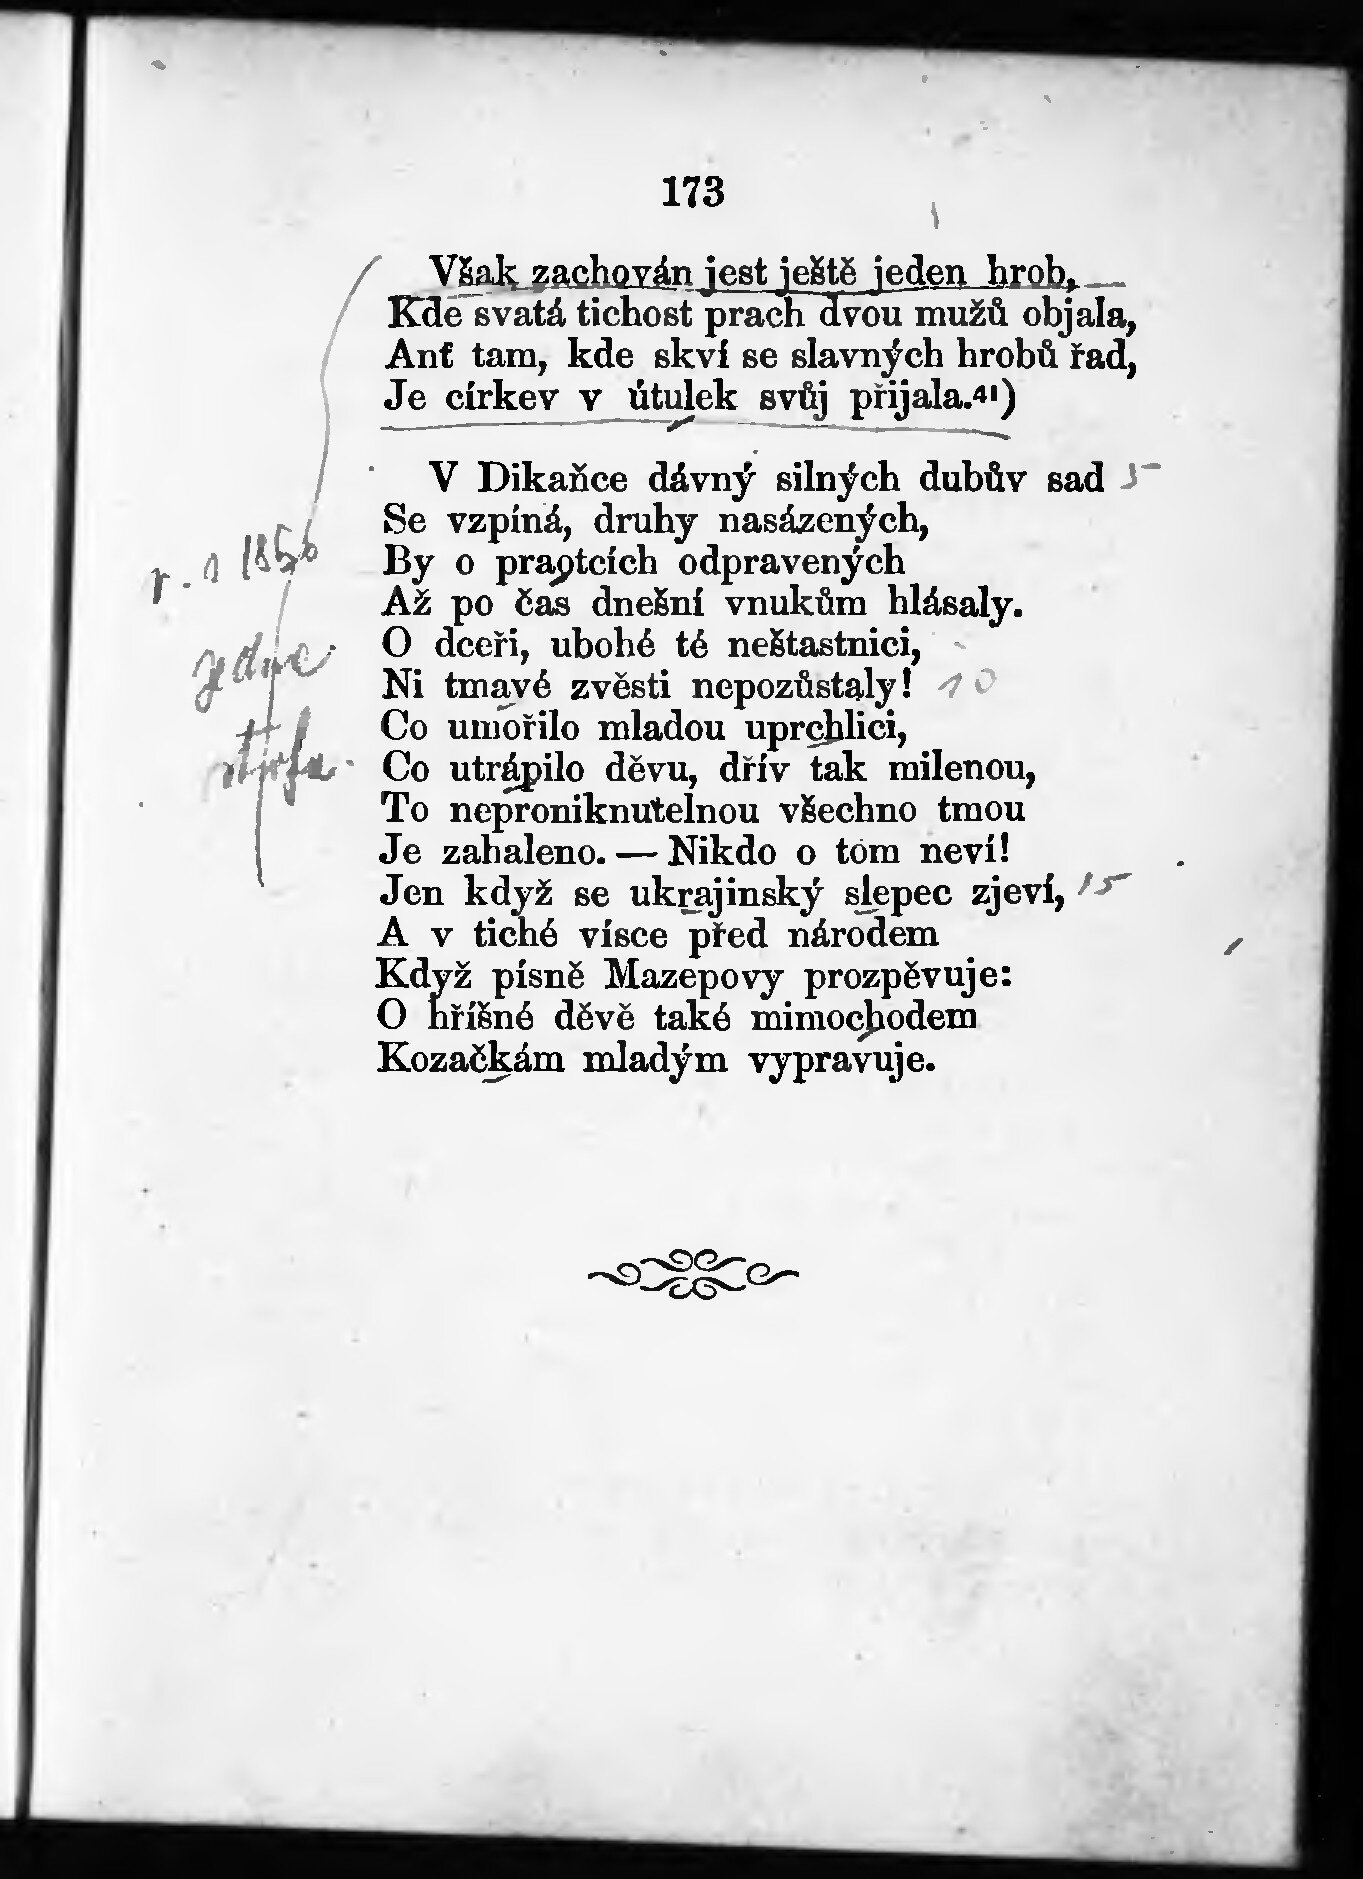 173
Však zachován jest ještě jeden hrob,
Kde svatá tichost prach dvou mužů objala,
Anť tam, kde skví se slavných hrobů řad,
Je církev v útulek svůj přijala.41)
V Dikaňce dávný silných dubův sad 5
Se vzpíná, druhy nasázených,
By o praotcích odpravených
Až po čas dnešní vnukům hlásaly.
O dceři, ubohé té neštastnici,
Ni tmavé zvěsti nepozůstaly! 10
Co umořilo mladou uprchlici,
Co utrápilo děvu, dřív tak milenou,
To neproniknutelnou všechno tmou
Je zahaleno. — Nikdo o tom neví!
Jen když se ukrajinský slepec zjeví, 15
A v tiché vísce před národem
Když písně Mazepovy prozpěvuje:
O hříšné děvě také mimochodem
Kozačkám mladým vypravuje.
r. 1856